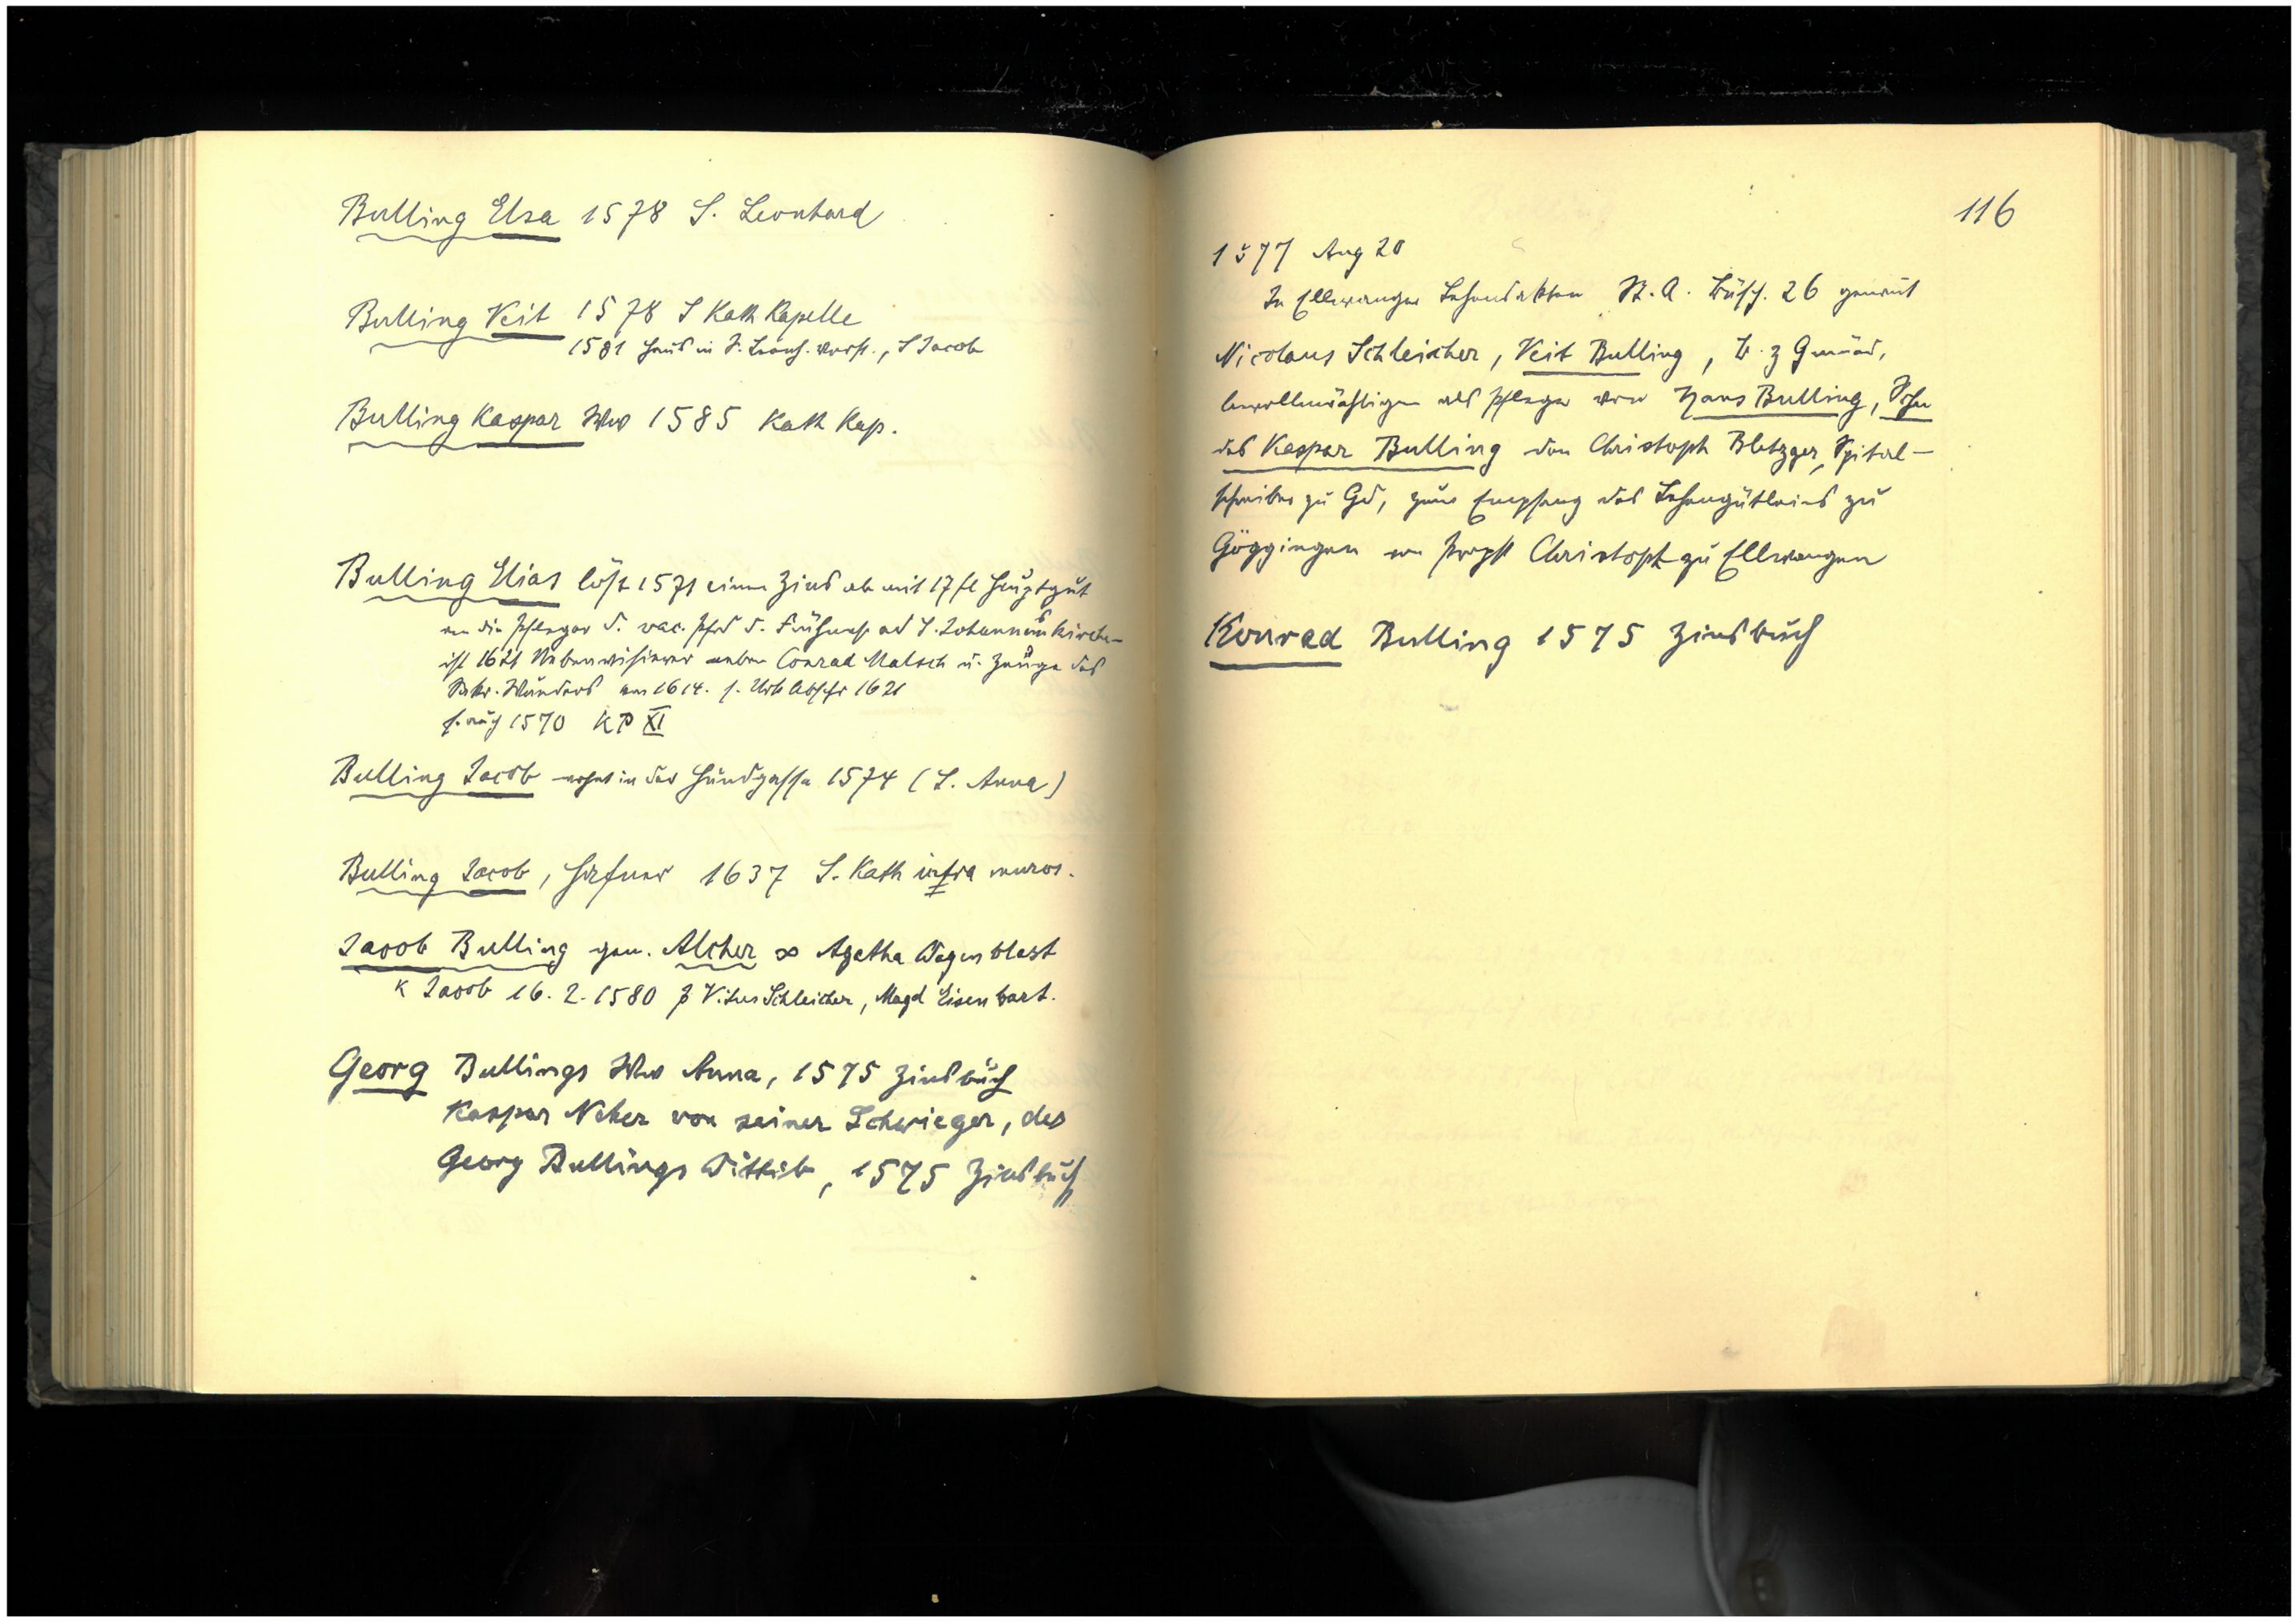 Bulling Elsa 1578 S. Leonhard
Bulling Veit 1578 S Kath Kapelle
1581 Haus in S. Leonh. Vorst., S Jacob
Bulling Kaspar Ww 1585 Kath Kap.
Bulling Elias löst 1571 einen Zins ab mit 17 fl Hauptgut
an die Pfleger d. vac. Pfrd d. Frühmeß ad S. Johanneskirche
ist 1621 neben Conrad Malsch u. Zeuge des
Wunders von 1614. s. Urk Abschr 1621
s. auch 1570 KP XI
Bulling Jacob wohnt in der Hundgasse 1574 (S. Anna)
Bulling Jacob, Hafner 1637 S. Kath infra muros.
Jacob Bulling gen. Alcher ∞ Agatha Wagenblast
K Jacob 16. 2. 1580 Vitus Schleicher, Magd Eisenbart.
Georg Bullings Ww Anna, 1575 Zinsbuch
Kaspar Neher von seiner Schwieger, des
Georg Bullings Wittib, 1575 Zinsbuch
116
1577 Aug 20
In Ellwanger Lehensakten St. A. Büsch. 26 genannt
Nicolaus Schleicher, Veit Bulling, B. z Gmünd,
bevollmächtigen als Pfleger von Hans Bulling, Sohn
des Kaspar Bulling den Christoph Bletzger, Spital-
schreiber zu Gd, zum Empfang des Lehengütleins zu
Göggingen von Propst Christoph zu Ellwangen
Konrad Bulling 1575 Zinsbuch